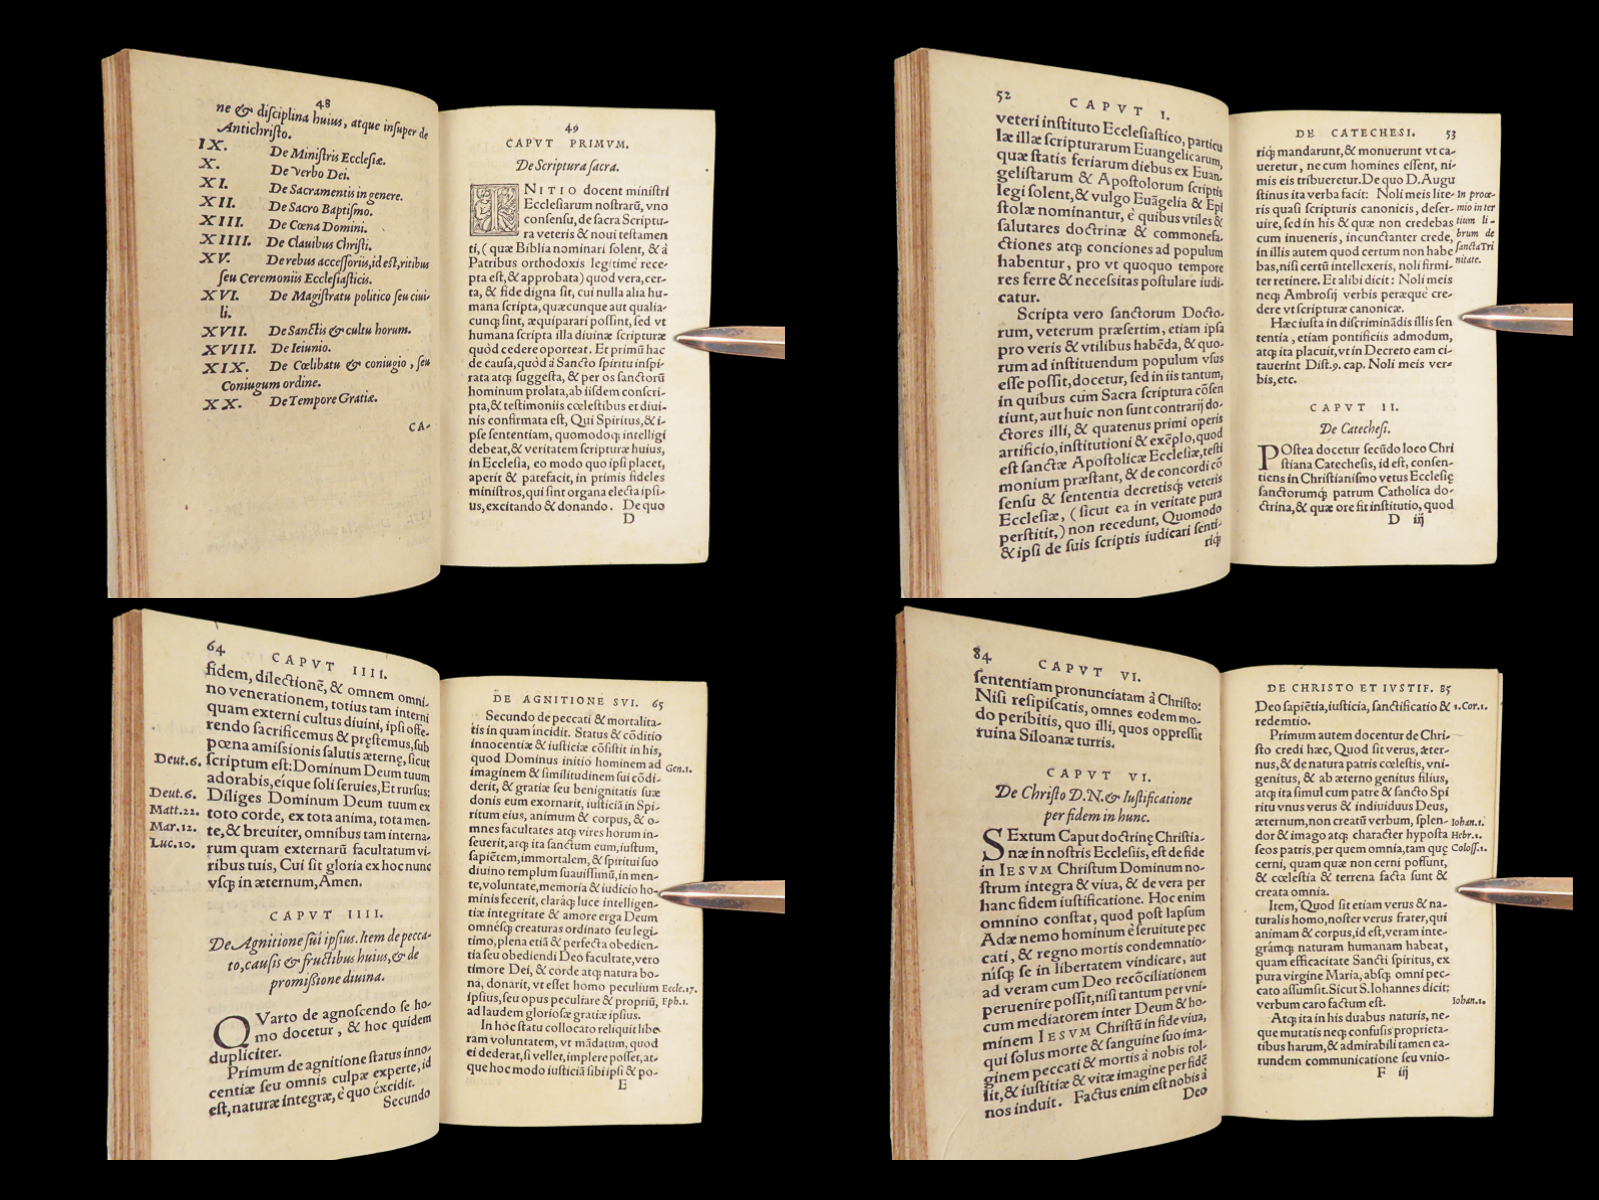 48
ne & disciplina huius, atque insuper de
Antichristo.
IX. De Ministris Ecclesiæ.
X. De verbo Dei.
XI. De Sacramentis in genere.
XII. De Sacro Baptismo.
XIII. De Cœna Domini.
XIIII. De Clauibus Christi.
XV. De rebus accessoriis, id est, ritibus
seu Ceremoniis Ecclesiasticis.
XVI. De Magistratu politico seu ciui-
li.
XVII. De Sanctis & cultu horum.
XVIII. De Ieiunio.
XIX. De Cœlibatu & coniugio, seu
Coniugum ordine.
XX. De Tempore Gratiæ.
CA-
49
CAPVT PRIMVM.
De Scriptura sacra.
INITIO docent ministri
Ecclesiarum nostrarũ, vno
consensu, de sacra Scriptu-
ra veteris & noui testamen
ti, (quæ Biblia nominari solent, & à
Patribus orthodoxis legitimè rece-
pta est, & approbata) quod vera, cer-
ta, & fide digna sit, cui nulla alia hu-
mana scripta, quæcunque aut qualia-
cunq; sint, æquiparari possint, sed vt
humana scripta illa diuinæ scripturæ
quòd cedere oporteat. Et primũ hac
de causa, quòd à Sancto spiritu inspi-
rata atq; suggesta, & per os sanctorũ
hominum prolata, ab iisdem conscri-
pta, & testimoniis cœlestibus et diui-
nis confirmata est, Qui Spiritus, & i-
pse sententiam, quomodoq; intelligi
debeat, & veritatem scripturæ huius,
in Ecclesia, eo modo quo ipsi placet,
aperit & patefacit, in primis fideles
ministros, qui sint organa electa ipsi-
us, excitando & donando. De quo
D
52 CAPVT I.
veteri instituto Ecclesiastico, particu
læ illæ scripturarum Euangelicarum,
quæ statis feriarum diebus ex Euan-
gelistarum & Apostolorum scriptis
legi solent, & vulgo Euãgelia & Epi
stolæ nominantur, è quibus vtiles &
salutares doctrinæ & commonefa-
ctiones atq; conciones ad populum
habentur, pro vt quoquo tempore
res ferre & necessitas postulare iudi-
catur.
Scripta vero sanctorum Docto-
rum, veterum præsertim, etiam ipsa
pro veris & vtilibus habẽda, & quo-
rum ad instituendum populum vsus
esse possit, docetur, sed in iis tantum,
in quibus cum Sacra scriptura cõsen
tiunt, aut huic non sunt contrarij do-
ctores illi, & quatenus primi operis
artificio, institutioni & exẽplo, quod
est sanctæ Apostolicæ Ecclesiæ, testi
monium præstant, & de concordi cõ
sensu & sententia decretisq; veteris
Ecclesiæ, (sicut ea in veritate pura
perstitit,) non recedunt, Quomodo
& ipsi de suis scriptis iudicari senti-
riq;
DE CATECHESI. 53
riq; mandarunt, & monuerunt vt ca-
ueretur, ne cum homines essent, ni-
mis eis tribueretur. De quo D. Augu
stinus ita verba facit: Noli meis lite-
ris quasi scripturis canonicis, deser-
uire, sed in his & quæ non credebas
cum inueneris, incunctanter crede,
in illis autem quod certum non habe
bas, nisi certũ intellexeris, noli firmi-
ter retinere. Et alibi dicit: Noli meis
neq; Ambrosij verbis peræquè cre-
dere vt scripturæ canonicæ.
In proœ-
mio in ter
tium li-
brum de
sancta Tri
nitate.
Hæc iusta in discriminãdis illis sen
tentia, etiam pontificiis admodum,
atq; ita placuit, vt in Decreto eam ci-
tauerint Dist. 9. cap. Noli meis ver-
bis, etc.
CAPVT II.
De Catechesi.
POstea docetur secũdo loco Chri
stiana Catechesis, id est, consen-
tiens in Christianismo vetus Ecclesię
sanctorumq; patrum Catholica do-
ctrina, & quæ ore fit institutio, quod
D iij
64 CAPVT IIII.
fidem, dilectionẽ, & omnem omni-
no venerationem, totius tam interni
quam externi cultus diuini, ipsi offe-
rendo sacrificemus & pręstemus, sub
pœna amissionis salutis æternę, sicut
scriptum est: Dominum Deum tuum
adorabis, eique soli seruies, Et rursus:
Diliges Dominum Deum tuum ex
toto corde, ex tota anima, tota men-
te, & breuiter, omnibus tam interna-
rum quam externarũ facultatum vi-
ribus tuis, Cui sit gloria ex hoc nunc
vsq; in æternum, Amen.
Deut. 6.
Deut. 6.
Matt. 22.
Mar. 12.
Luc. 10.
CAPVT IIII.
De Agnitione sui ipsius. Item de pecca-
to, causis & fructibus huius, & de
promissione diuina.
QVarto de agnoscendo se ho-
mo docetur, & hoc quidem
dupliciter.
Primum de agnitione status inno-
centiæ seu omnis culpæ experte, id
est, naturæ integræ, è quo excidit.
Secundo
DE AGNITIONE SVI. 65
Secundo de peccati & mortalita-
tis in quam incidit. Status & cõditio
innocentiæ & iusticiæ cõsistit in his,
quod Dominus initio hominem ad
imaginem & similitudinem sui cõdi-
derit, & gratiæ seu benignitatis suæ
donis eum exornarit, iusticiã in Spi-
ritum eius, animum & corpus, & o-
mnes facultates atq; vires horum in-
seuerit, atq; ita sanctum eum, iustum,
sapiẽtem, immortalem, & spiritui suo
diuino templum suauissimũ, in men-
te, voluntate, memoria & iudicio ho-
minis fecerit, claráq; luce intelligen-
tiæ integritate & amore erga Deum
omnésq; creaturas ordinato seu legi-
timo, plena etiã & perfecta obedien-
tia seu obediendi Deo facultate, vero
timore Dei, & corde atq; natura bo-
na, donarit, vt esset homo peculium
ipsius, seu opus peculiare & propriũ,
ad laudem gloriosæ gratiæ ipsius.
Gen. 1.
Eccle. 17.
Eph. 1.
In hoc statu collocato reliquit libe
ram voluntatem, vt mãdatum, quod
ei dederat, si vellet, implere posset, at-
que hoc modo iusticiã sibi ipsi & po-
E
84 CAPVT VI.
sententiam pronunciatam à Christo:
Nisi resipiscatis, omnes eodem mo-
do peribitis, quo illi, quos oppressit
ruina Siloanæ turris.
CAPVT VI.
De Christo D. N. & Iustificatione
per fidem in hunc.
SExtum Caput doctrinę Christia-
næ in nostris Ecclesiis, est de fide
in IESVM Christum Dominum no-
strum integra & viua, & de vera per
hanc fidem iustificatione. Hoc enim
omnino constat, quod post lapsum
Adæ nemo hominum è seruitute pec
cati, & regno mortis condemnatio-
nisq; se in libertatem vindicare, aut
ad veram cum Deo recõciliationem
peruenire possit, nisi tantum per vni-
cum mediatorem inter Deum & ho-
minem IESVM Christũ in fide viua,
qui solus morte & sanguine suo ima-
ginem peccati & mortis à nobis tol-
lit, & iustitiæ & vitæ imagine per fidẽ
nos induit. Factus enim est nobis à
Deo
DE CHRISTO ET IVSTIF. 85
Deo sapiẽtia, iusticia, sanctificatio &
redemtio.
1. Cor. 1.
Primum autem docentur de Chri-
sto credi hæc, Quod sit verus, æter-
nus, & de natura patris cœlestis, vni-
genitus, & ab æterno genitus filius,
atq; ita simul cum patre & sancto Spi
ritu vnus verus & indiuiduus Deus,
æternum, non creatũ verbum, splen-
dor & imago atq; character hyposta
seos patris, per quem omnia, tam quę
cerni, quam quæ non cerni possunt,
& cœlestia & terrena facta sunt &
creata omnia.
Iohan. 1.
Hebr. 1.
Coloss. 1.
Item, Quod sit etiam verus & na-
turalis homo, noster verus frater, qui
animam & corpus, id est, veram inte-
grámq; naturam humanam habeat,
quam efficacitate Sancti spiritus, ex
pura virgine Maria, absq; omni pec-
cato assumsit. Sicut S. Iohannes dicit:
verbum caro factum est.
Iohan. 1.
Atq; ita in his duabus naturis, ne-
que mutatis neq; confusis proprieta-
tibus harum, & admirabili tamen ea-
rundem communicatione seu vnio-
F iij